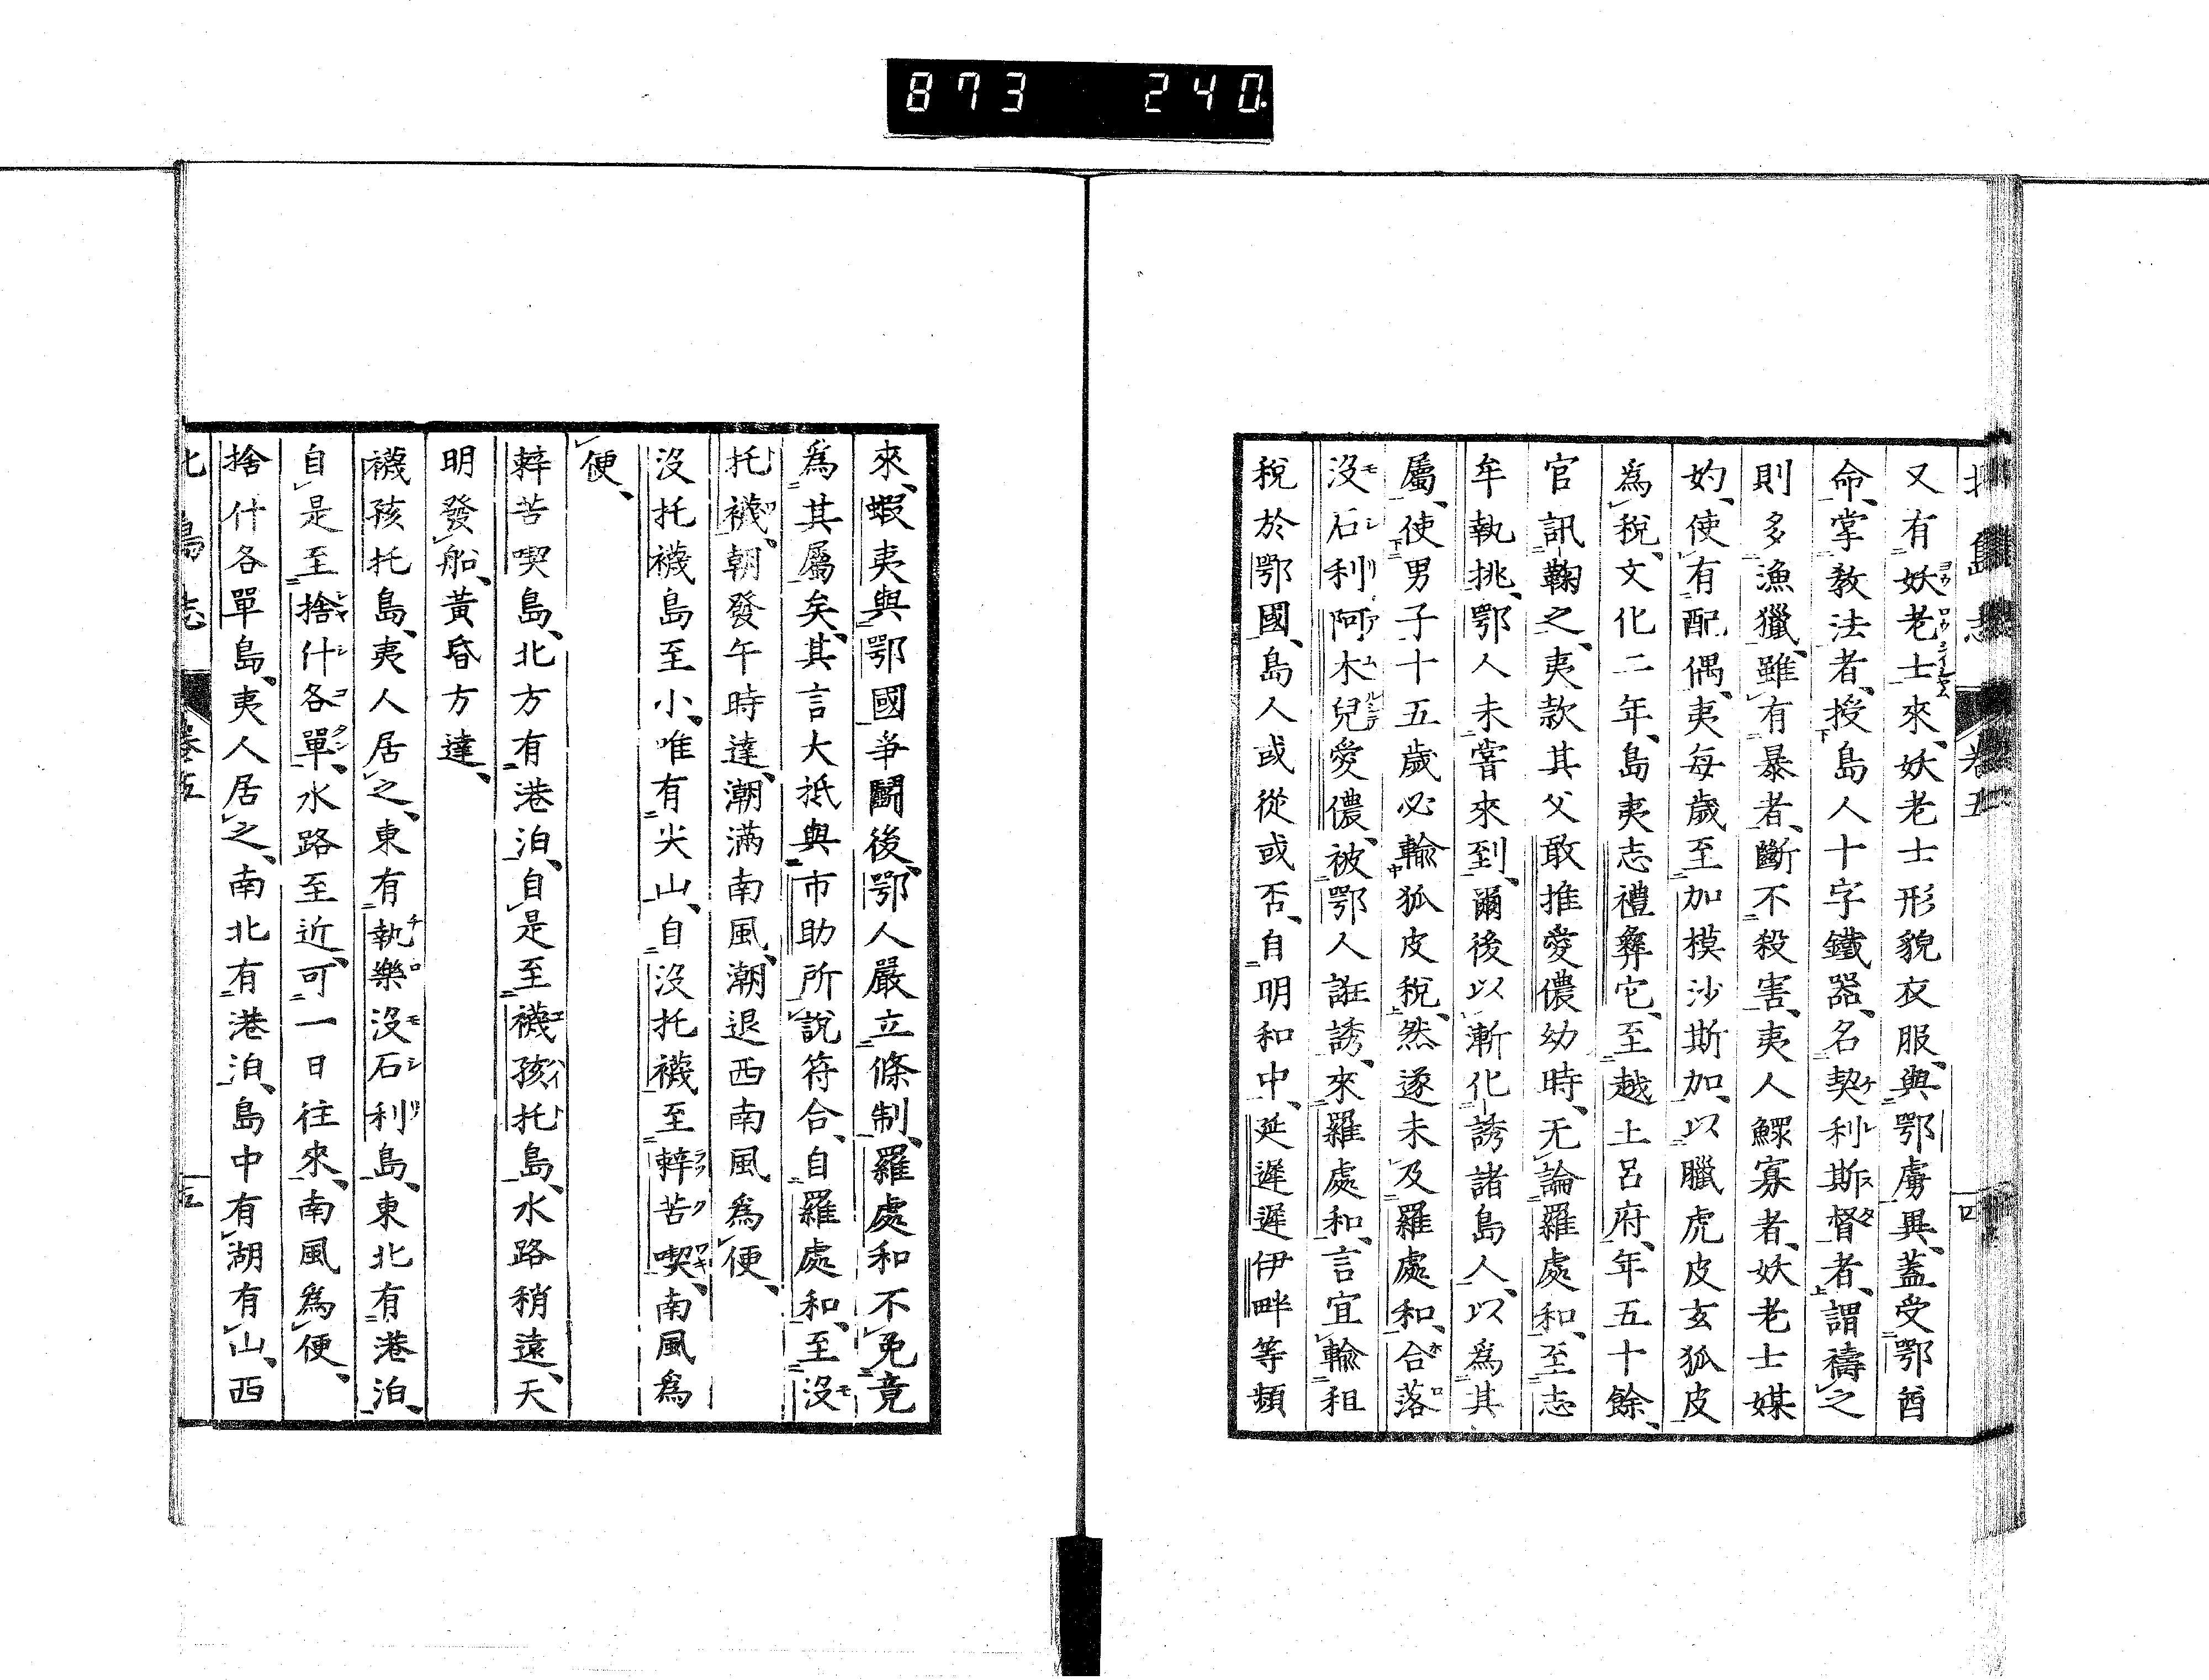 873 240
北島志 卷五 四
又有妖老士來、妖老士形貌衣服、與鄂虜異、蓋受鄂酋
命、掌教法者、授島人十字鐵器、名契利斯督者、謂禱之
則多漁獵、雖有暴者、斷不殺害、夷人鰥寡者、妖老士媒
妁、使有配偶、夷每歲至加模沙斯加、以臘虎皮玄狐皮
爲稅、文化二年、島夷志禮彝它、至越土呂府、年五十餘、
官訊鞠之、夷款其父敢推愛儂幼時、无論羅處和、至志
牟執挑、鄂人未嘗來到、爾後以漸化誘諸島人、以爲其
屬、使男子十五歲必輸狐皮稅、然遂未及羅處和、合落
沒石利阿木兒愛儂、被鄂人誑誘、來羅處和、言宜輸租
稅於鄂國、島人或從或否、自明和中、延遲遲伊畔等類
來、蝦夷與鄂國爭鬭後、鄂人嚴立條制、羅處和不免竟
爲其屬矣、其言大抵與市助所說符合、自羅處和、至沒
托襪、朝發午時達、潮滿南風、潮退西南風爲便、
沒托襪島至小、唯有尖山、自沒托襪至辢苦喫、南風爲
便、
辢苦喫島、北方有港泊、自是至襪孩托島、水路稍遠、天
明發船、黃昏方達、
襪孩托島、夷人居之、東有執樂沒石利島、東北有港泊、
自是至捨什各單、水路至近、可一日往來、南風爲便、
捨什各單島、夷人居之、南北有港泊、島中有湖有山、西
北島志 卷五 五